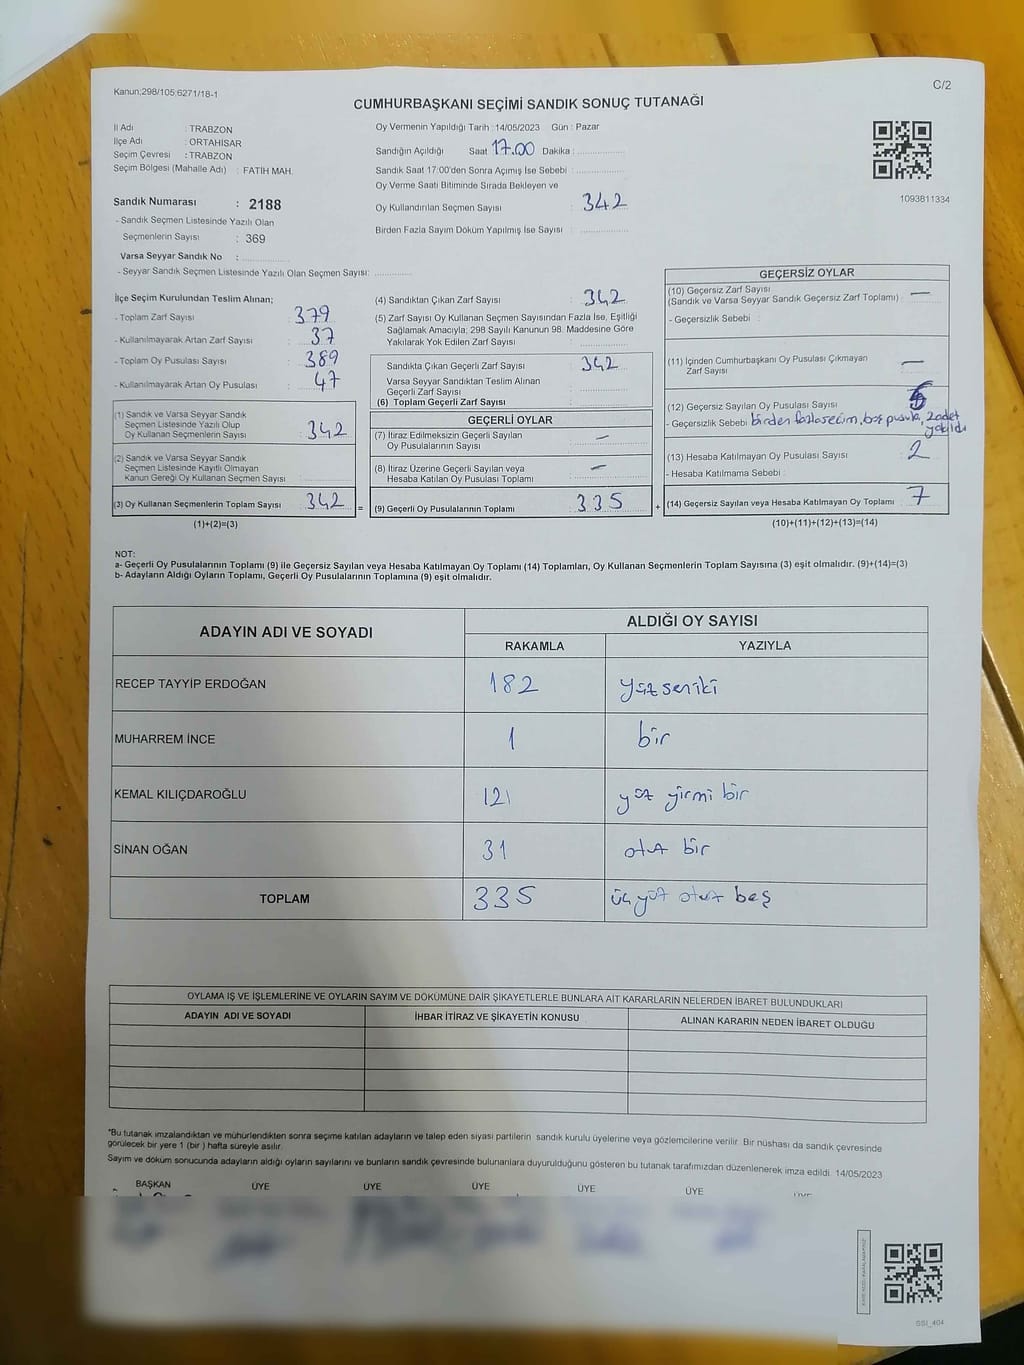 Kanun;298/105;6271/18-1
C/2
CUMHURBAŞKANI SEÇİMİ SANDIK SONUÇ TUTANAĞI
İl Adı : TRABZON
İlçe Adı : ORTAHİSAR
Seçim Çevresi : TRABZON
Seçim Bölgesi (Mahalle Adı) : FATİH MAH.
Oy Vermenin Yapıldığı Tarih : 14/05/2023 Gün : Pazar
Sandığın Açıldığı Saat 17.00 Dakika :
Sandık Saat 17:00'den Sonra Açımış İse Sebebi :
Oy Verme Saati Bitiminde Sırada Bekleyen ve
Oy Kullandırılan Seçmen Sayısı : 342
Birden Fazla Sayım Döküm Yapılmış İse Sayısı :
1093811334
Sandık Numarası : 2188
- Sandık Seçmen Listesinde Yazılı Olan
Seçmenlerin Sayısı : 369
Varsa Seyyar Sandık No :
- Seyyar Sandık Seçmen Listesinde Yazılı Olan Seçmen Sayısı:
İlçe Seçim Kurulundan Teslim Alınan;
- Toplam Zarf Sayısı : 379
- Kullanılmayarak Artan Zarf Sayısı : 37
- Toplam Oy Pusulası Sayısı : 389
- Kullanılmayarak Artan Oy Pusulası : 47
(1) Sandık ve Varsa Seyyar Sandık
Seçmen Listesinde Yazılı Olup
Oy Kullanan Seçmenlerin Sayısı : 342
(2) Sandık ve Varsa Seyyar Sandık
Seçmen Listesinde Kayıtlı Olmayan
Kanun Gereği Oy Kullanan Seçmen Sayısı :
(3) Oy Kullanan Seçmenlerin Toplam Sayısı : 342 =
(1)+(2)=(3)
(4) Sandıktan Çıkan Zarf Sayısı : 342
(5) Zarf Sayısı Oy Kullanan Seçmen Sayısından Fazla İse, Eşitliği
Sağlamak Amacıyla; 298 Sayılı Kanunun 98. Maddesine Göre
Yakılarak Yok Edilen Zarf Sayısı :
Sandıkta Çıkan Geçerli Zarf Sayısı : 342
Varsa Seyyar Sandıktan Teslim Alınan
Geçerli Zarf Sayısı :
(6) Toplam Geçerli Zarf Sayısı :
GEÇERLİ OYLAR
(7) İtiraz Edilmeksizin Geçerli Sayılan
Oy Pusulalarının Sayısı : —
(8) İtiraz Üzerine Geçerli Sayılan veya
Hesaba Katılan Oy Pusulası Toplamı : —
(9) Geçerli Oy Pusulalarının Toplamı : 335 +
GEÇERSİZ OYLAR
(10) Geçersiz Zarf Sayısı
(Sandık ve Varsa Seyyar Sandık Geçersiz Zarf Toplamı) : —
- Geçersizlik Sebebi :
(11) İçinden Cumhurbaşkanı Oy Pusulası Çıkmayan
Zarf Sayısı : —
(12) Geçersiz Sayılan Oy Pusulası Sayısı : 5
- Geçersizlik Sebebi birden fazla seçim, boş pusula, 2 adet
yakıldı
(13) Hesaba Katılmayan Oy Pusulası Sayısı : 2
- Hesaba Katılmama Sebebi :
(14) Geçersiz Sayılan veya Hesaba Katılmayan Oy Toplamı : 7
(10)+(11)+(12)+(13)=(14)
NOT:
a- Geçerli Oy Pusulalarının Toplamı (9) ile Geçersiz Sayılan veya Hesaba Katılmayan Oy Toplamı (14) Toplamları, Oy Kullanan Seçmenlerin Toplam Sayısına (3) eşit olmalıdır. (9)+(14)=(3)
b- Adayların Aldığı Oyların Toplamı, Geçerli Oy Pusulalarının Toplamına (9) eşit olmalıdır.
ADAYIN ADI VE SOYADI
ALDIĞI OY SAYISI
RAKAMLA YAZIYLA
RECEP TAYYİP ERDOĞAN 182 yüz seniki
MUHARREM İNCE 1 bir
KEMAL KILIÇDAROĞLU 121 yüz yirmi bir
SİNAN OĞAN 31 otuz bir
TOPLAM 335 üç yüz otuz beş
OYLAMA İŞ VE İŞLEMLERİNE VE OYLARIN SAYIM VE DÖKÜMÜNE DAİR ŞİKAYETLERLE BUNLARA AİT KARARLARIN NELERDEN İBARET BULUNDUKLARI
ADAYIN ADI VE SOYADI İHBAR İTİRAZ VE ŞİKAYETİN KONUSU ALINAN KARARIN NEDEN İBARET OLDUĞU
*Bu tutanak imzalandıktan ve mühürlendikten sonra seçime katılan adayların ve talep eden siyasi partilerin sandık kurulu üyelerine veya gözlemcilerine verilir. Bir nüshası da sandık çevresinde
görülecek bir yere 1 (bir ) hafta süreyle asılır.
Sayım ve döküm sonucunda adayların aldığı oyların sayılarını ve bunların sandık çevresinde bulunanlara duyurulduğunu gösteren bu tutanak tarafımızdan düzenlenerek imza edildi. 14/05/2023
BAŞKAN ÜYE ÜYE ÜYE ÜYE ÜYE
SSI_404